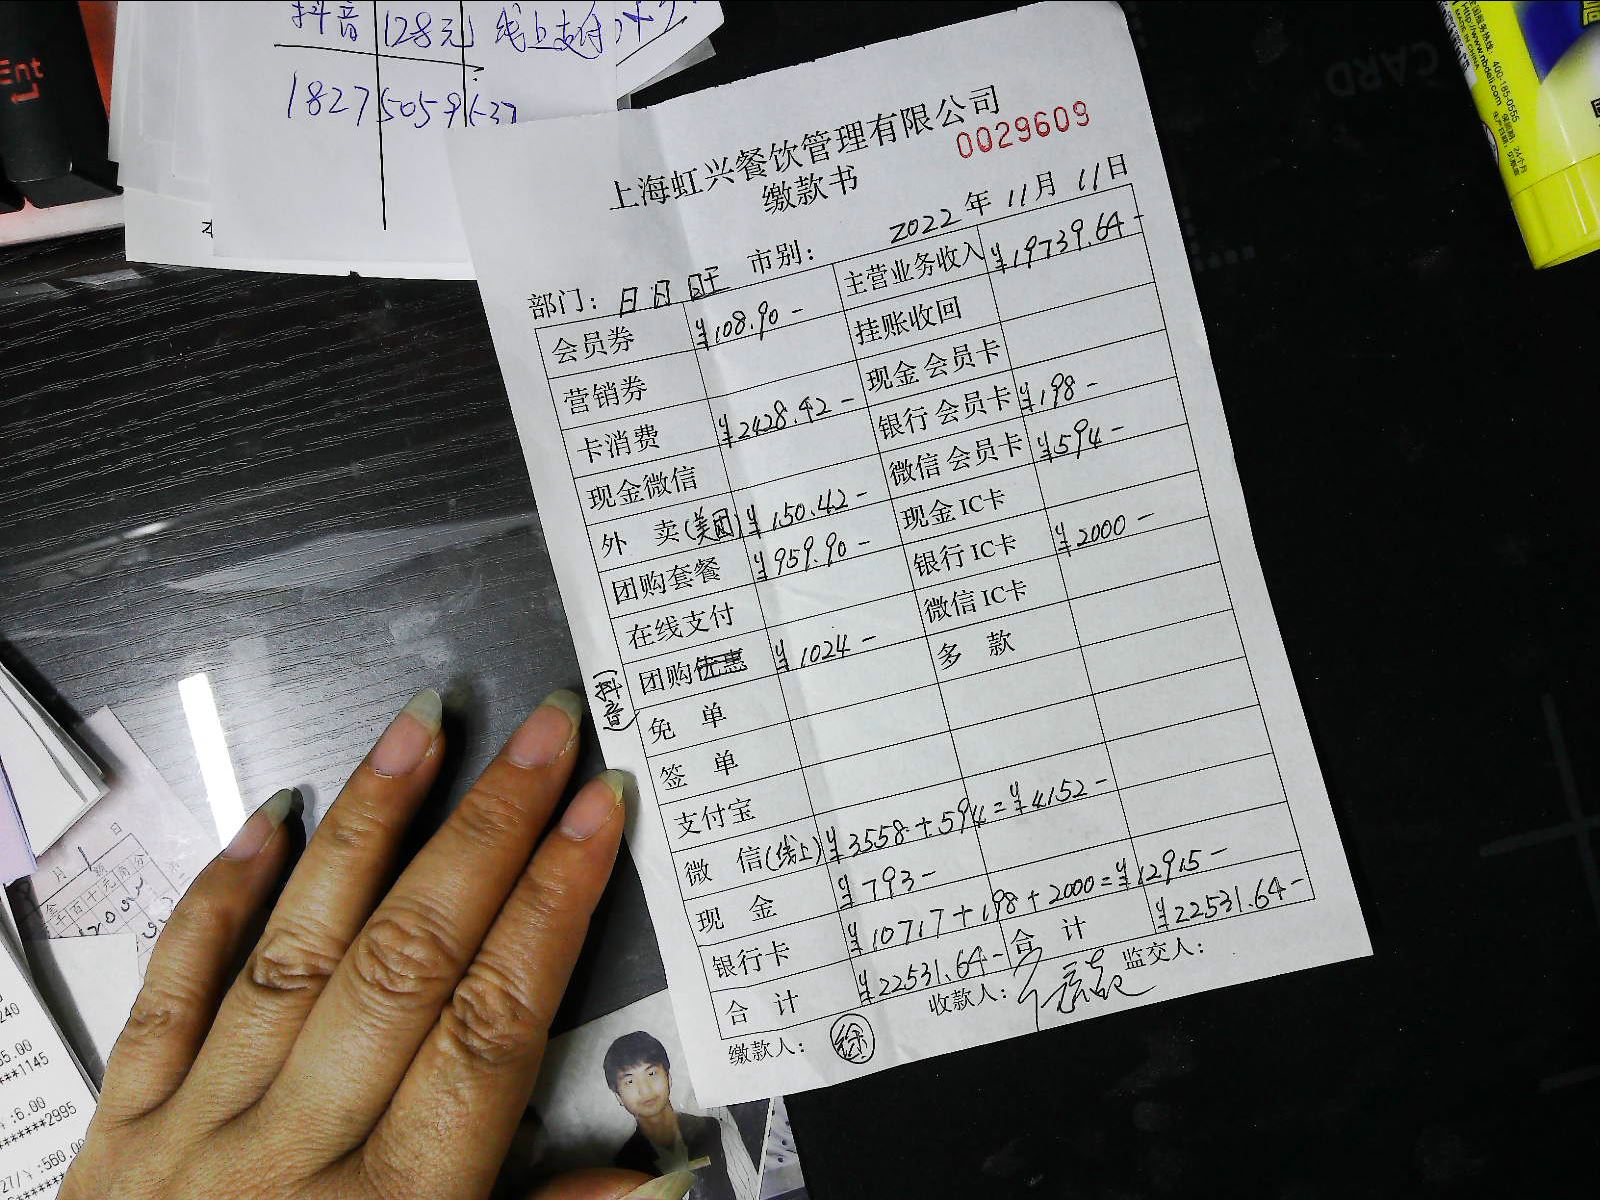 抖音 128元 线上支付
1827505 9637
Ent
CARD
Http://www.nbdeli.com
MADE IN CHINA
400-185-0555
上海虹兴餐饮管理有限公司
0029609
缴款书
2022年 11月 11日
部门: 日月旺 市别:
会员券 ¥108.90- 主营业务收入 ¥19739.64-
营销券 挂账收回
卡消费 ¥2428.42- 现金会员卡
现金微信 银行会员卡 ¥198-
外 卖(美团) ¥150.42- 微信会员卡 ¥594-
团购套餐 ¥959.90- 现金IC卡
在线支付 银行IC卡 ¥2000-
团购优惠 (抖音) ¥1024- 微信IC卡
免 单 多 款
签 单
支付宝
微 信(线上) ¥3558+594=¥4152-
现 金 ¥793-
银行卡 ¥10717+198+2000=¥12915-
合 计 ¥22531.64- 合 计 ¥22531.64-
缴款人: 徐 收款人: 监交人:
240
35.00
***1145
:6.00
********2995
27/ :560.00
日
月
金 百 十 元 角 分